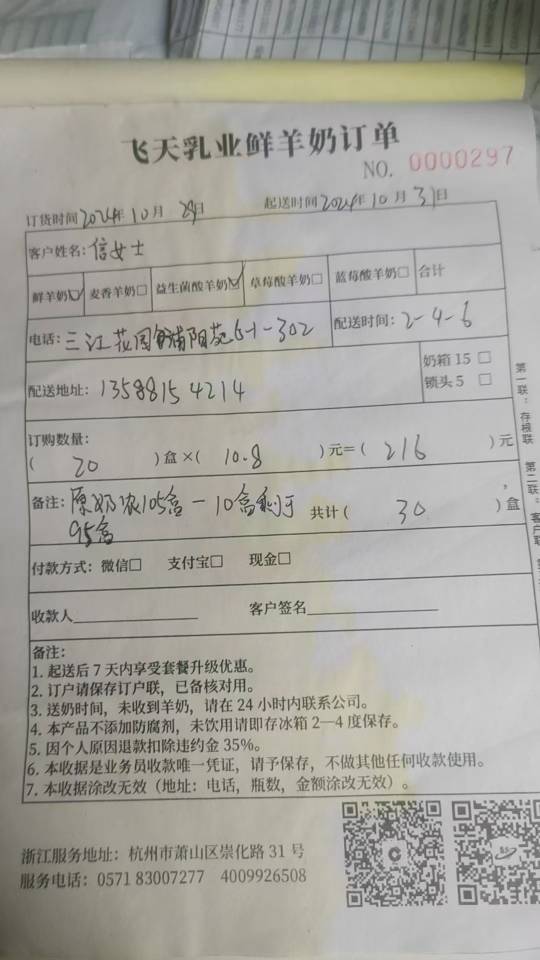 飞天乳业鲜羊奶订单
NO. 0000297
订货时间2024年10月29日 起送时间2024年10月31日
客户姓名：信女士
鲜羊奶☑ 麦香羊奶□ 益生菌酸羊奶☑ 草莓酸羊奶□ 蓝莓酸羊奶□ 合计
电话：三江花园浦阳苑6-1-302 配送时间：2-4-6
配送地址：13588154214 奶箱 15 □
锁头 5 □
订购数量：
( 20 ) 盒 ×( 10.8 ) 元＝( 216 ) 元
备注：原奶浓105盒－10盒剩于 共计 ( 30 ) 盒
95盒
付款方式：微信□ 支付宝□ 现金□
收款人 客户签名
备注：
1. 起送后 7 天内享受套餐升级优惠。
2. 订户请保存订户联，已备核对用。
3. 送奶时间，未收到羊奶，请在 24 小时内联系公司。
4. 本产品不添加防腐剂，未饮用请即存冰箱 2—4 度保存。
5. 因个人原因退款扣除违约金 35%。
6. 本收据是业务员收款唯一凭证，请予保存，不做其他任何收款使用。
7. 本收据涂改无效（地址：电话，瓶数，金额涂改无效）。
第一联：存根联 第二联：客户联
浙江服务地址：杭州市萧山区崇化路 31 号
服务电话：0571 83007277 4009926508